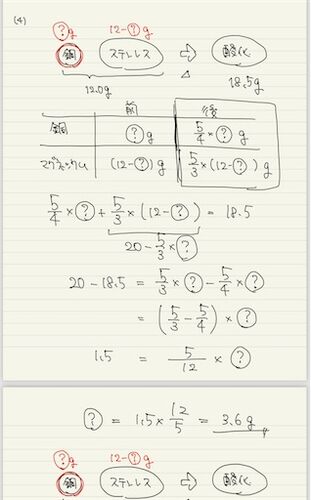 (4)
?g 12-?g
銅 ステンレス ⇨ 酸化
12.0g △ 18.5g
前 後
銅 ?g 5/4×?g
マグネシウム (12-?)g 5/3×(12-?)g
5/4×?+5/3×(12-?)=18.5
20-5/3×?
20-18.5=5/3×?-5/4×?
=(5/3-5/4)×?
1.5=5/12×?
?=1.5×12/5=3.6g
?g 12-?g
銅 ステンレス ⇨ 酸化